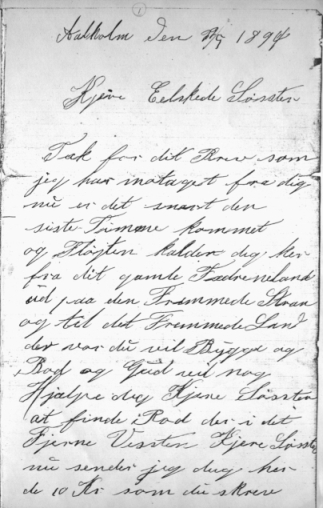 1
Aalholm den 1/5 1894
Kjere Eelskede Søsster
Tak for dit Brev som
jeg har motaget fra dig
nu er det snart den
siste Timme kommet
og Fløjten kalder dig her
fra dit gamle Fædreneland
ud paa den Fremmede Stran
og til det Fremmede Land
der vor du vil Bygge og
Bod og Gud vil nog
Hjælpe dig Kjere Søsster
at finde Rod der i det
Fjerne Vessten Kjere Søsste
nu sender jeg dig her
de 10 Kr som du skrev